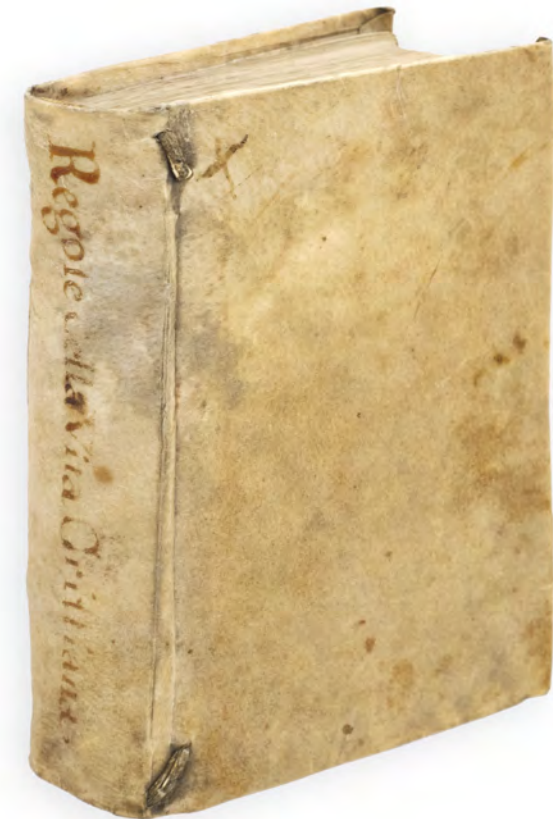 Regole della Vita Cristiana.
X